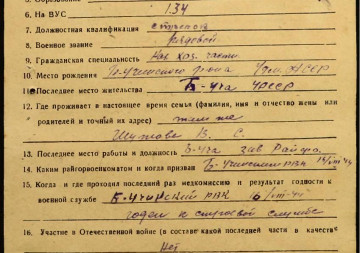 6. На ВУС 134
7. Должностная квалификация стрелок
8. Военное звание рядовой
9. Гражданская специальность Нач. хоз. части
10. Место рождения района Удм. АССР
11. Последнее место жительства Б-Уча УАССР
12. Где проживает в настоящее время семья (фамилия, имя и отчество жены или
родителей и точный их адрес) там же
В. С.
13. Последнее место работы и должность Б-Уча зав
14. Каким райгорвоенкоматом и когда призван Б-Учинским РВК
15. Когда и где проходил последний раз медкомиссию и результат годности к
военной службе Б-Учинский РВК
годен к строевой службе
16. Участие в Отечественной войне (в составе какой последней части в качестве
Нет